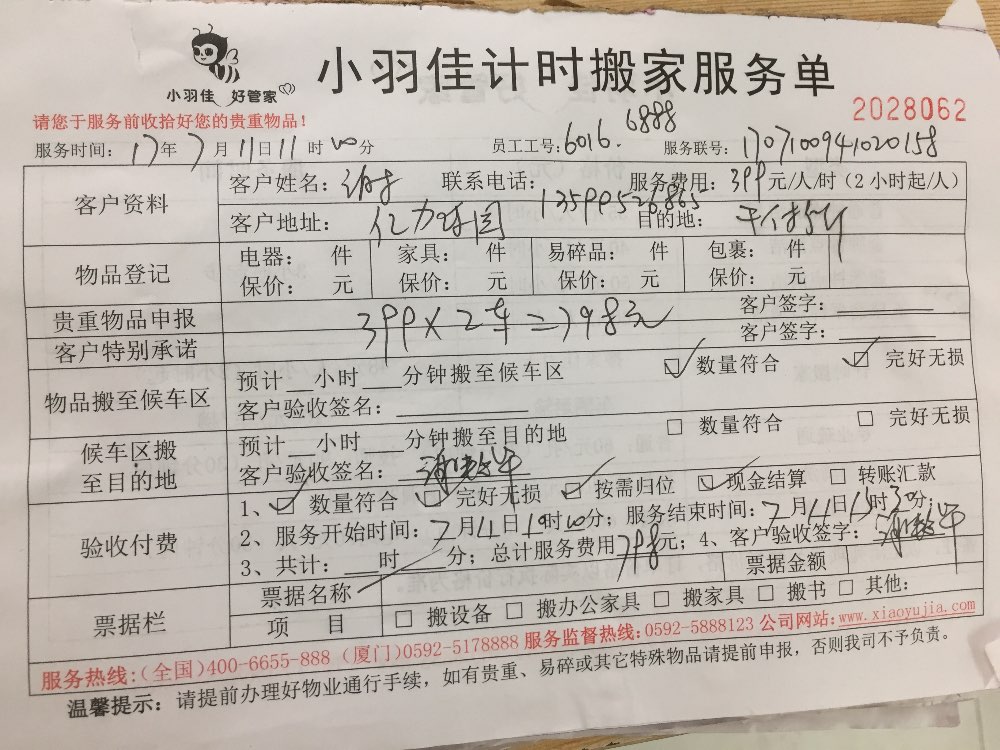 小羽佳 好管家
小羽佳计时搬家服务单
请您于服务前收拾好您的贵重物品！
2028062
服务时间：17年7月11日11时00分 员工工号：6016 6888 服务联号：1707100941020158
客户资料 客户姓名： 联系电话：13599526865 服务费用：399元/人/时（2小时起/人）
客户地址： 目的地：
物品登记 电器： 件 家具： 件 易碎品： 件 包裹： 件
保价： 元 保价： 元 保价： 元 保价： 元
贵重物品申报 399×2车=798元 客户签字：
客户特别承诺 客户签字：
物品搬至候车区 预计 小时 分钟搬至候车区 数量符合 完好无损
客户验收签名：
候车区搬至目的地 预计 小时 分钟搬至目的地 数量符合 完好无损
客户验收签名：
验收付费 1、 数量符合 完好无损 按需归位 现金结算 转账汇款
2、服务开始时间：7月11日 时00分；服务结束时间：7月11日 时30分；
3、共计： 时 分；总计服务费用798元；4、客户验收签字：
票据栏 票据名称 票据金额
项 目 搬设备 搬办公家具 搬家具 搬书 其他：
服务热线：（全国）400-6655-888（厦门）0592-5178888 服务监督热线：0592-5888123 公司网站：www.xiaoyujia.com
温馨提示：请提前办理好物业通行手续，如有贵重、易碎或其它特殊物品请提前申报，否则我司不予负责。